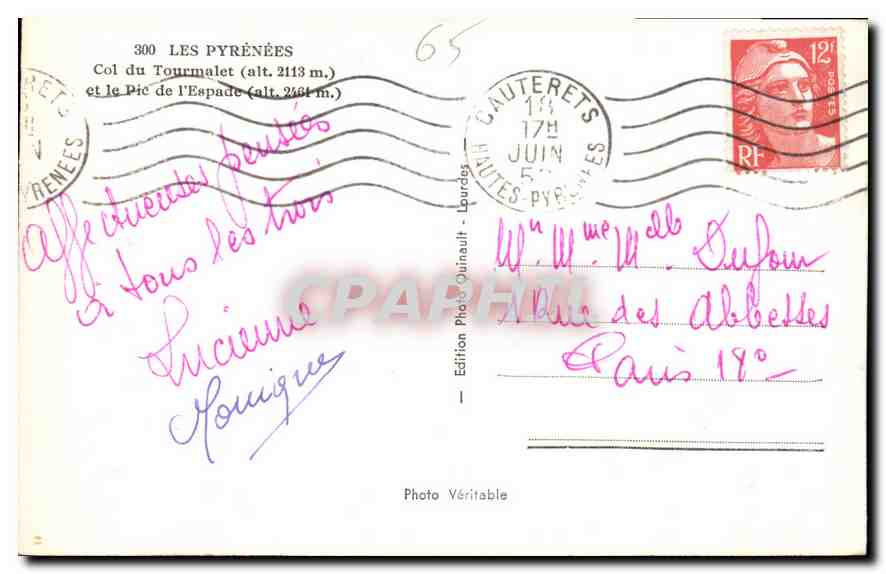 300 LES PYRÉNÉES
Col du Tourmalet (alt. 2113 m.)
et le Pic de l'Espade (alt. 2461 m.)
65
CAUTERETS
17H
JUIN
HAUTES-PYRÉNÉES
12F
POSTES
RF
Affectueuses pensées
à tous les trois
Lucienne
Monique
— Edition Photo Quinault - Lourdes —
Mr Mme Melle Dufour
Rue des Abbesses
Paris 18°
CPAPHIL
Photo Véritable